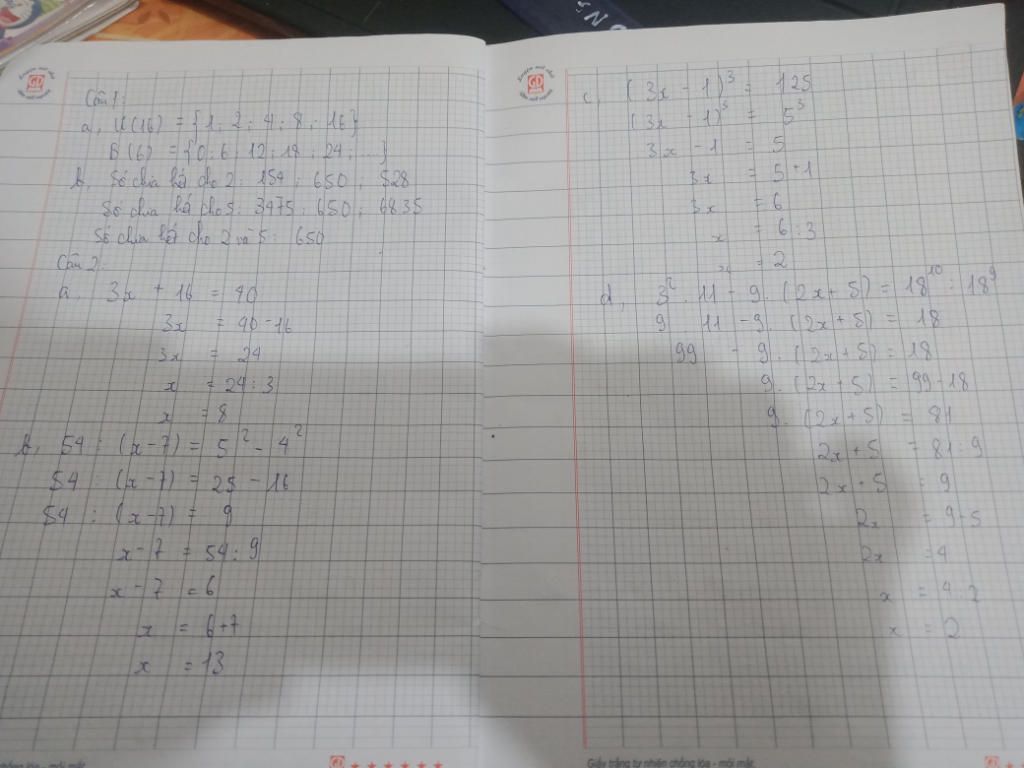 Câu 1:
a, Ư(16) = {1; 2; 4; 8; 16}
B(6) = {0; 6; 12; 18; 24; ...}
b, Số chia hết cho 2: 154; 650; 528
Số chia hết cho 5: 3975; 650; 6835
Số chia hết cho 2 và 5: 650
Câu 2:
a, 3x + 16 = 40
3x = 40 - 16
3x = 24
x = 24 : 3
x = 8
b, 54 : (x - 7) = 5² - 4²
54 : (x - 7) = 25 - 16
54 : (x - 7) = 9
x - 7 = 54 : 9
x - 7 = 6
x = 6 + 7
x = 13
c, (3x - 1)³ = 125
(3x - 1)³ = 5³
3x - 1 = 5
3x = 5 + 1
3x = 6
x = 6 : 3
x = 2
d, 3² . 11 - 9 . (2x + 5) = 18¹⁰ : 18⁹
9 . 11 - 9 . (2x + 5) = 18
99 - 9 . (2x + 5) = 18
9 . (2x + 5) = 99 - 18
9 . (2x + 5) = 81
2x + 5 = 81 : 9
2x + 5 = 9
2x = 9 - 5
2x = 4
x = 4 : 2
x = 2
chống lóa - mỏi mắt
Giấy trắng tự nhiên chống lóa - mỏi mắt